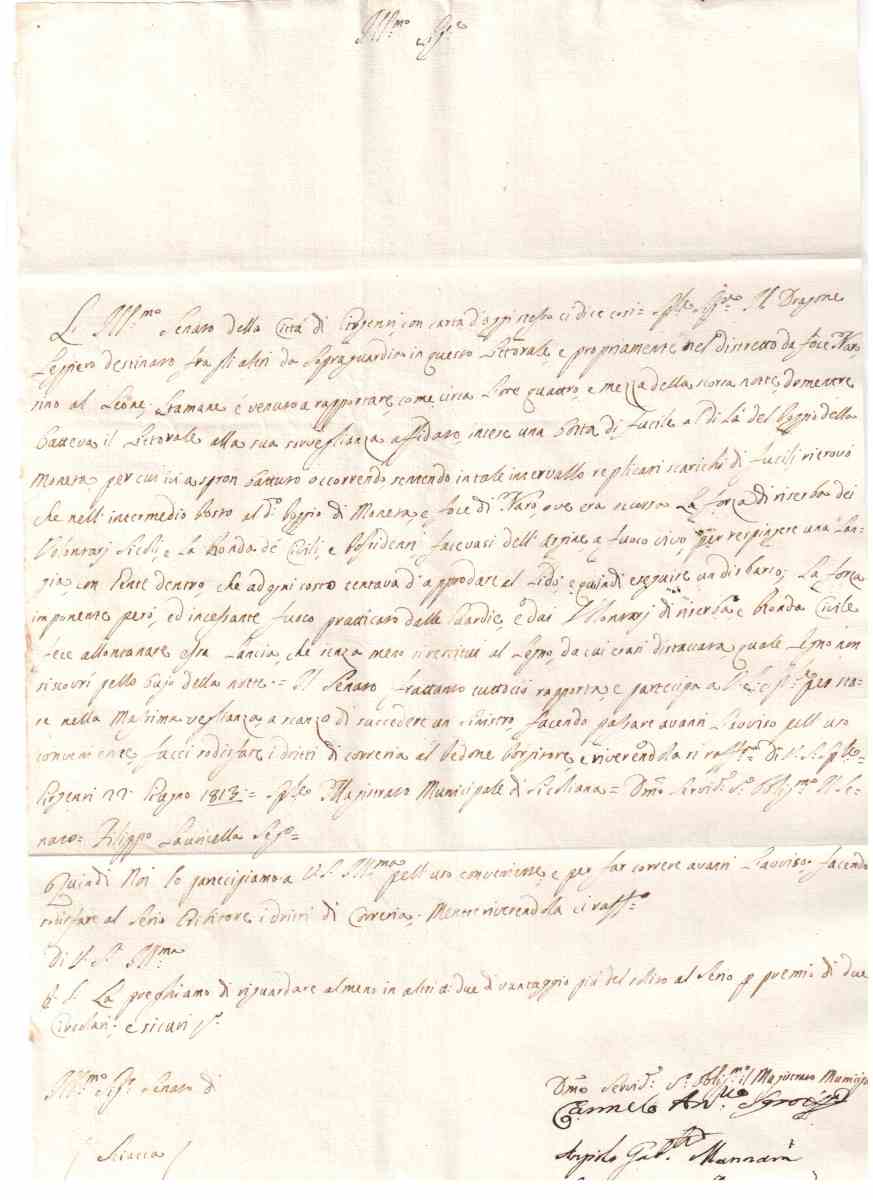 Ill:mo Sig:e
L' Ill:mo Senato della Città di Girgenti con carta d'oggi stesso ci dice così = Sp:le Sig:re Il Dragone
Leggiero destinato fra gli altri da Sopraguardino in questo Littorale, e propriamente nel distretto da foce Naro
sino al Leone; Stamane è venuto a rapportare, come circa l'ore quattro, e mezza della scorsa notte, dommentre
batteva il Littorale alla sua sorveglianza affidato, intese una botta di fucile al di là del Poggio della
Moneta, per cui ivi a spron battuto occorrendo sentendo in tale intervallo replicati scarichi di fucili ritrovò
che nell'intermedio Posto al d:o Poggio di Moneta, e foce di Naro, ove era accorsa La forza di riserba dei
Volontarj Sicoli, e La Ronda de' Civili, e Possidenti facevasi dell'armi, e fuoco vivo, per respingere una Lan-
gia, con Gente dentro, che ad ogni costo tentava d'approdare al Lido, e quindi eseguire un disbarco; La forza
imponente però, ed incessante fuoco pratticato dalle Guardie, e dai Volontarj di riserba, e Ronda Civile
fece allontanare essa Lancia, che senza meno si restituì al Legno, da cui erasi distaccata, quale Legno non
si scourì pello bujo della notte = Il Senato frattanto tuttociò rapporta, e partecipa a per sta-
re nella Massima veglianza a scanzo di succedere un sinistro, facendo passare avanti L'avviso pell'uso
conveniente, facci sodisfare i dritti di correria al Pedone e riverendola si raff:mo Di V:S: Sp:le
Girgenti 22 Giugno 1813 = Sp:le Magistrato Municipale di Siculiana = D:mo Servid: S: Obblig:mo Il Se-
nato = Filippo Lauricella Seg:o =
Quindi Noi lo partecipiamo a V:S: Ill:ma pell'uso conveniente, e per far correre avanti L'avviso, facendo
sodisfare al Serio i dritti di Correria; Mentre riverendola ci raff:o
Di V:S: Ill:ma
P:S: La preghiamo di riguardare almeno in altri due di vantaggio più del solito al Serio p premio di due
Circolari; e sicuri
Ill:mo Sig: Senato di
Sciacca
D:mo Servid: S: Obblig:mo il Magistrato Municip
Carmelo Ant:
Gab: Mannarà